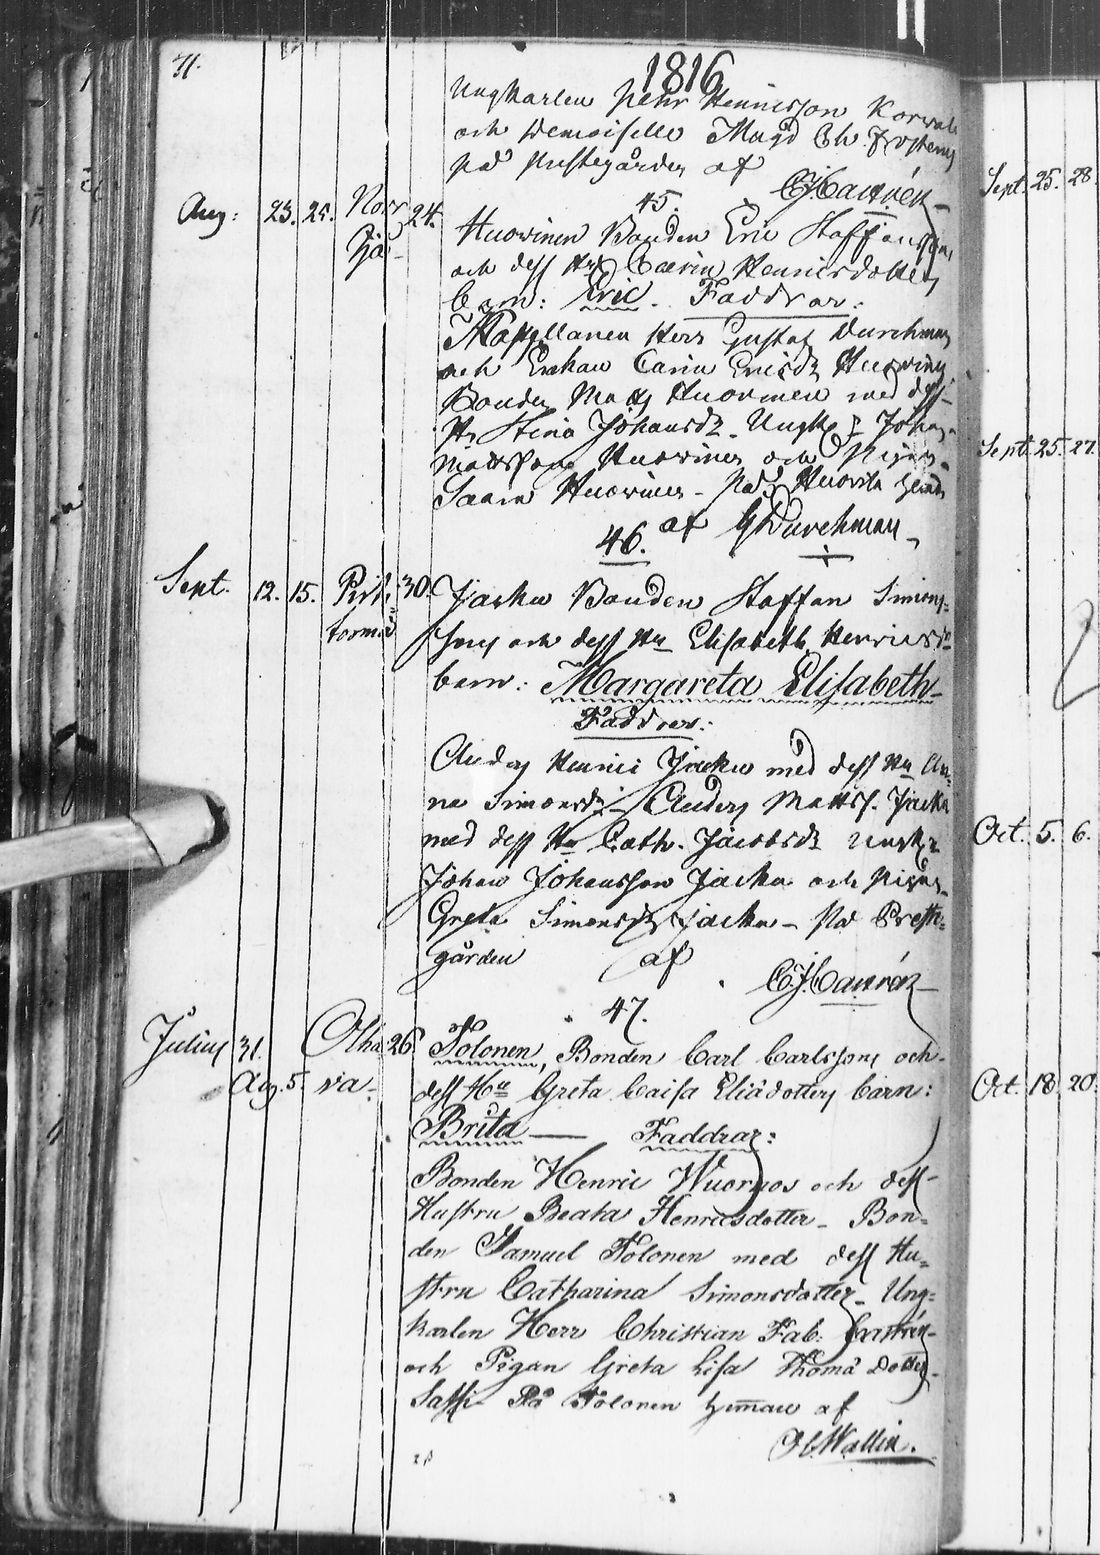 71.
1816
Ungkarlen Pehr Henricsson Korvala
och Demoiselle Magd Ch. Frosterus
på Prestegården af
C.J. Castrén
45.
Aug: 23. 25. Norr 24.
Huovinen Bonden Eric Staffansson
och dess Hu Carin Henricsdotters
barn: Eric. Faddrar:
Kapellanen Herr Gustaf Durchman
och Enkan Carin Ericsdr Huovinen
Bonden Matts Huovinen med dess
Hu Stina Johansdr. Ungk: Johan
Mattsson Huovinen och Pigan
Saara Huovinen - på Huovila
af G Durchman
46.
Sept. 12. 15. 30. Jaako Bonden Staffan Simons-
sons och dess Hu Elisabeth Henricsdr
barn: Margareta Elisabeth
Faddrar:
Anders Henrics Jaako med dess Hu An-
na Simonsdr - Anders Mattss. Jaako
med dess Hu Cath. Jacobsdr Ungk:
Johan Johansson Jaako och Pigan
Greta Simonsdr Jaako - På Prest-
gården af
C.J. Castrén
47.
Julius 31. Otha 26. Tolonen, Bonden Carl Carlssons och
Aug. 5. va. dess Hu Greta Caisa Eliædotters barn:
Brita — Faddrar:
Bonden Henric Wuornos och dess
Hustru Beata Henricsdotter - Bon-
den Samuel Tolonen med dess Hu-
stru Catharina Simonsdotter - Ung-
karlen Herr Christian Fab: Castrén
och Pigan Greta Lisa Thomædotter
Sassi På Tolonen heman af
Wallin.
Sept. 25. 28.
Sept. 25. 27.
Oct. 5. 6.
Oct. 18. 20.